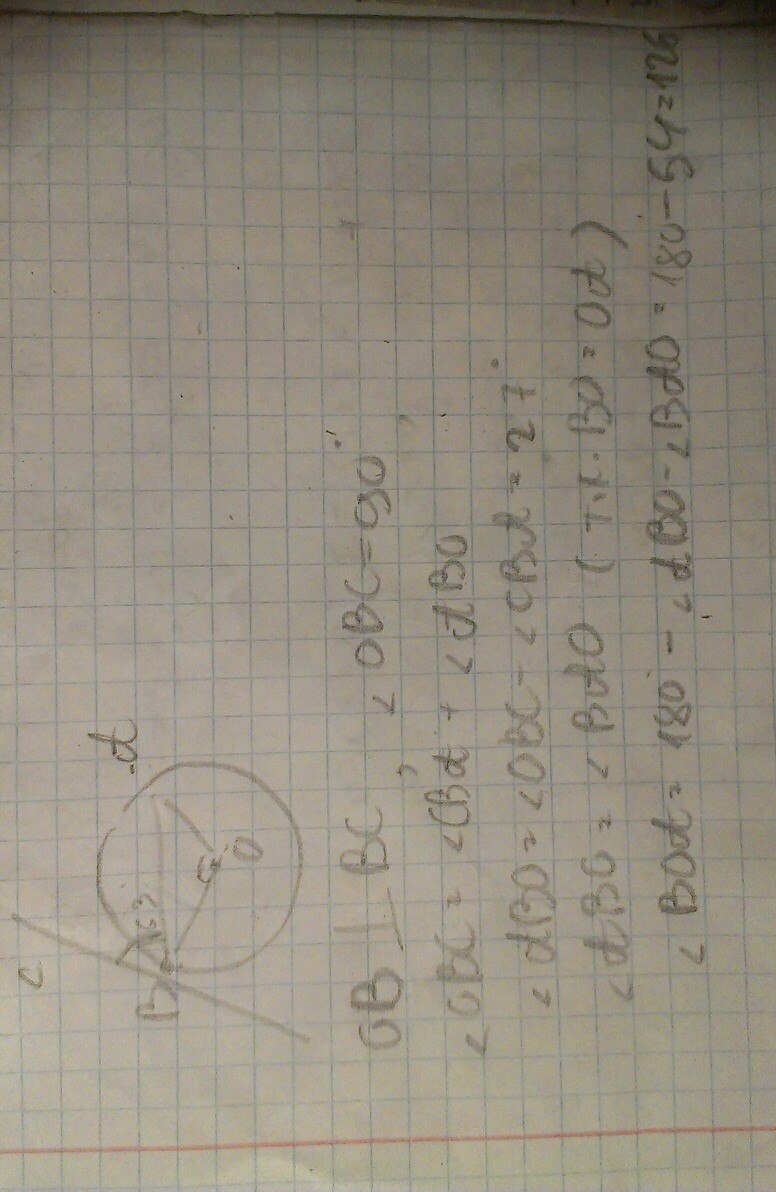 C
A
B
63
O
OB ⊥ BC, ∠OBC = 90°.
∠OBC = ∠CBA + ∠ABO
∠ABO = ∠OBC - ∠CBA = 27°
∠ABO = ∠BAO (т.к. BO = OA)
∠BOA = 180° - ∠ABO - ∠BAO = 180 - 54 = 126